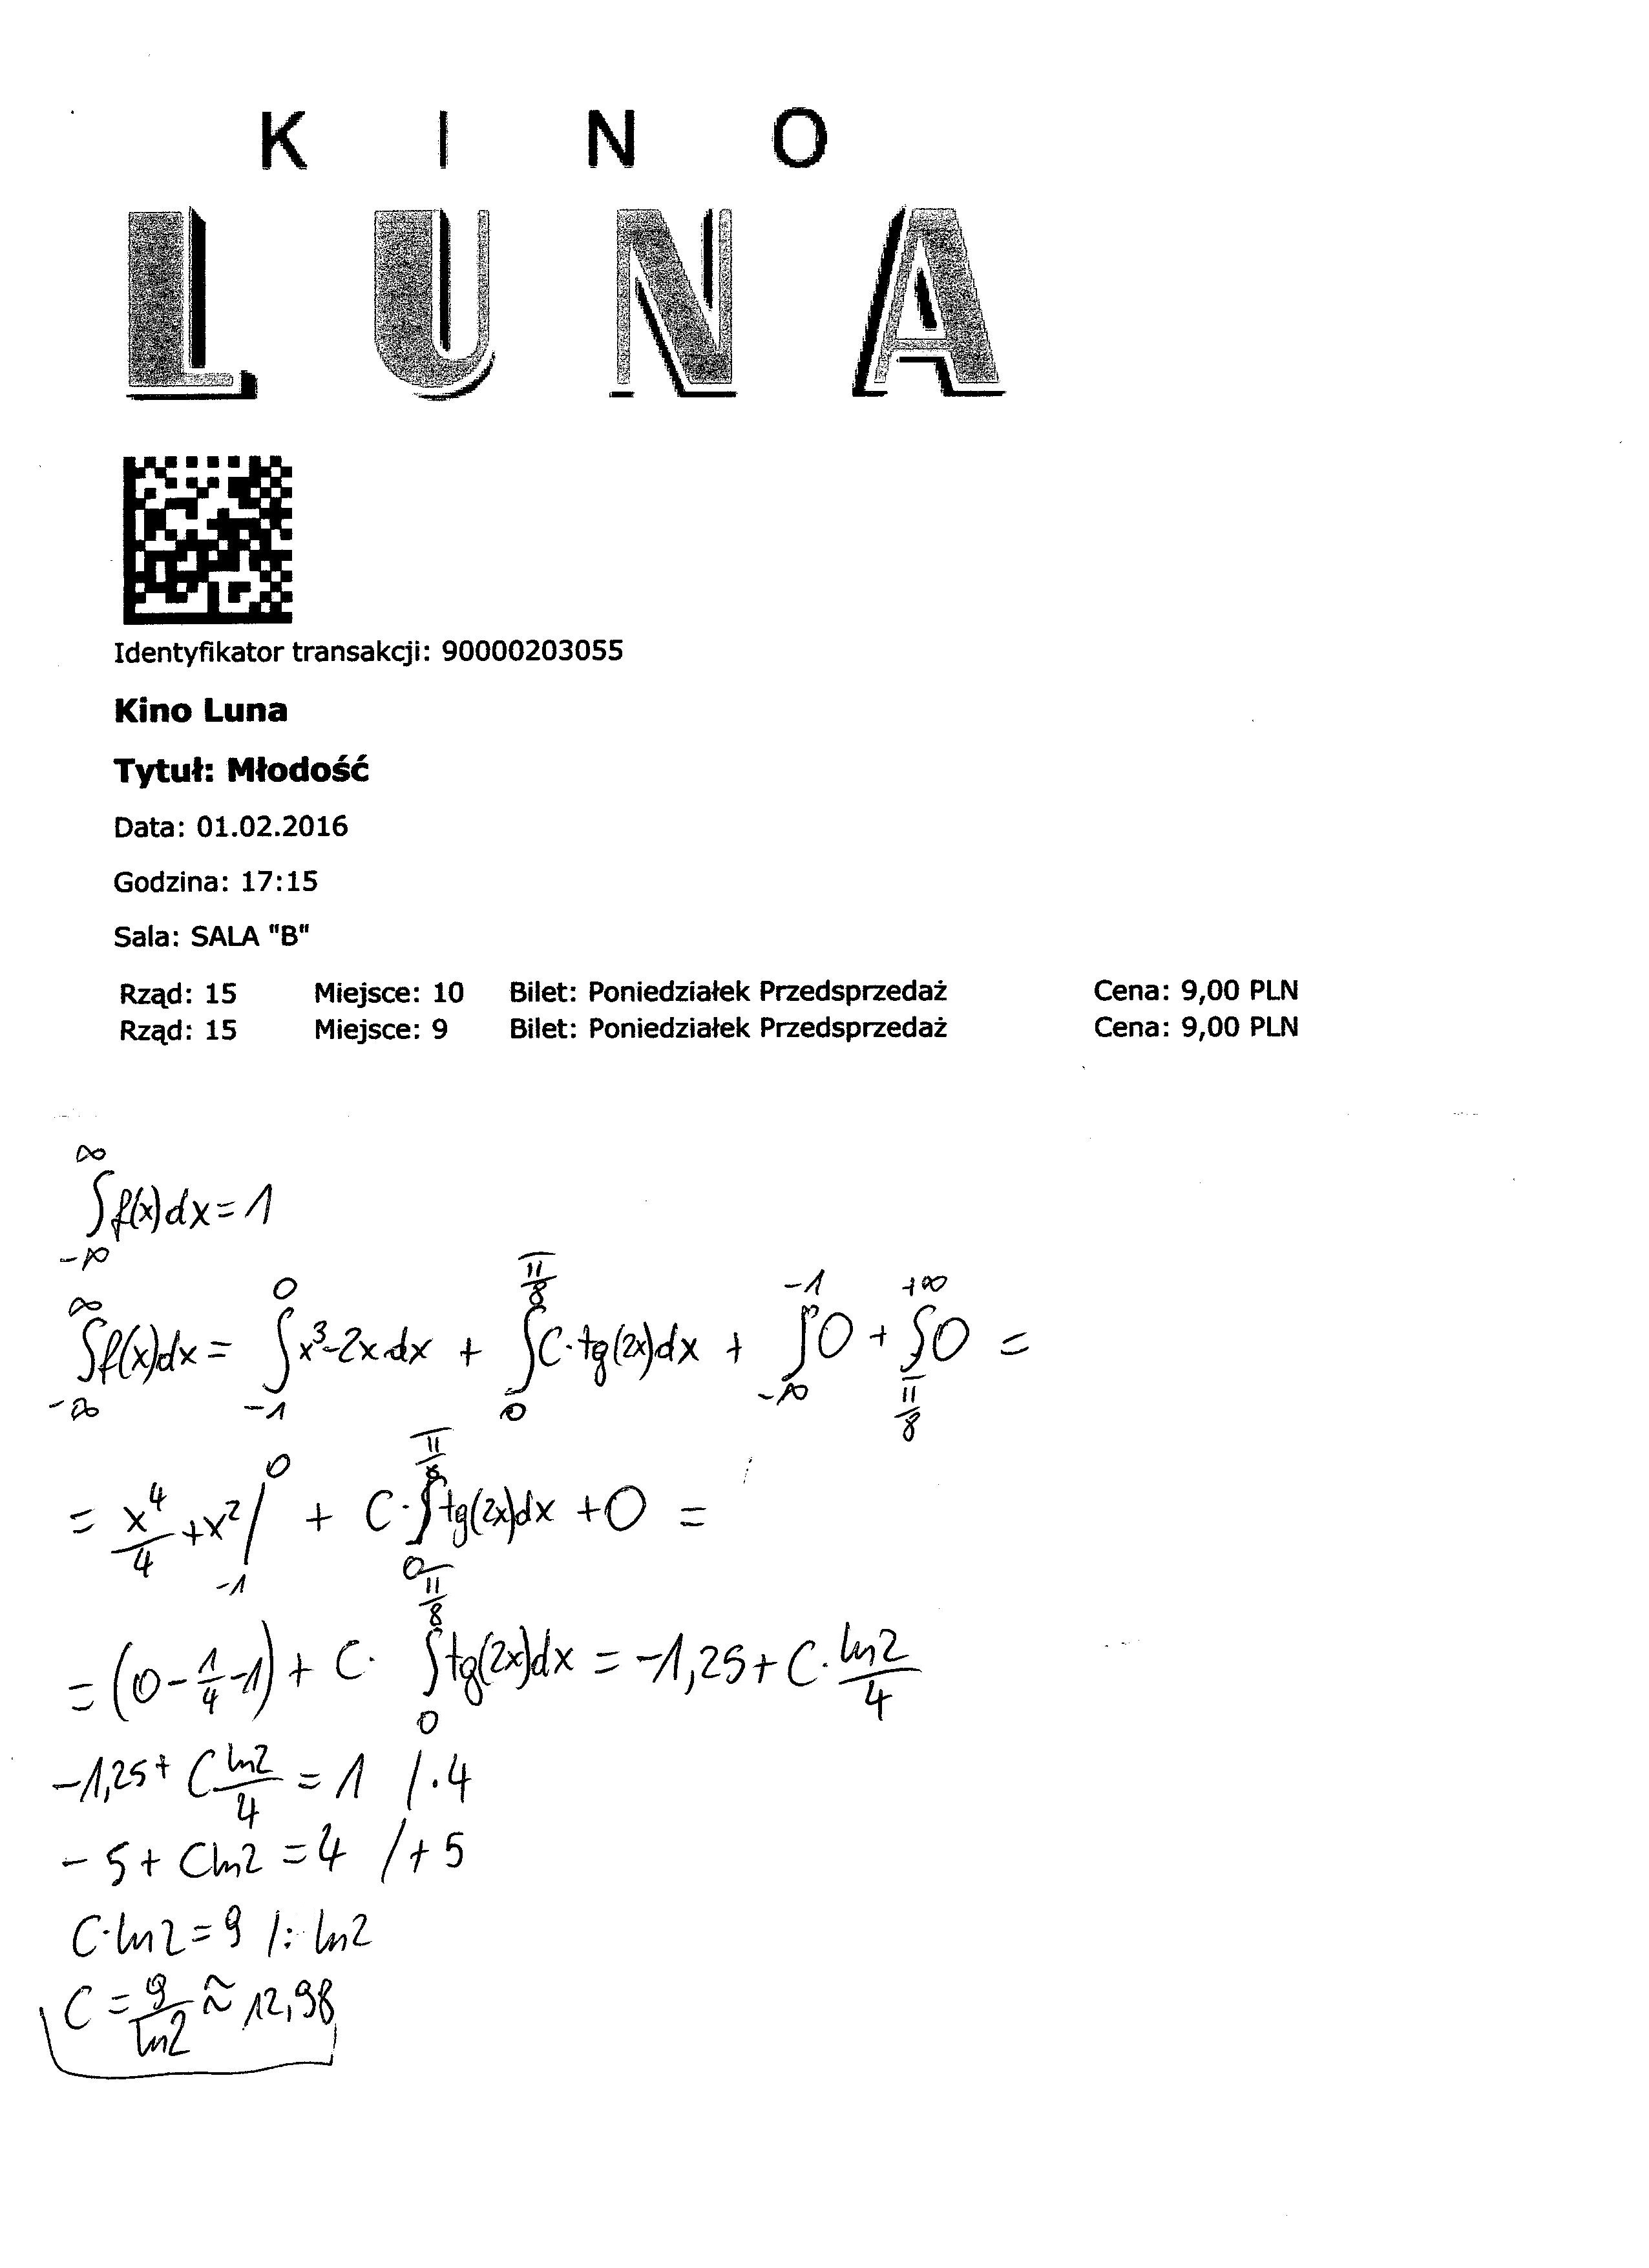 K I N O
LUNA
Identyfikator transakcji: 90000203055
Kino Luna
Tytuł: Młodość
Data: 01.02.2016
Godzina: 17:15
Sala: SALA "B"
Rząd: 15 Miejsce: 10 Bilet: Poniedziałek Przedsprzedaż Cena: 9,00 PLN
Rząd: 15 Miejsce: 9 Bilet: Poniedziałek Przedsprzedaż Cena: 9,00 PLN
∫_{-∞}^{∞} f(x)dx = 1
∫_{-∞}^{∞} f(x)dx = ∫_{-1}^{0} x³-2x dx + ∫_{0}^{π/8} C·tg(2x)dx + ∫_{-∞}^{-1} 0 + ∫_{π/8}^{+∞} 0 =
= x⁴/4 + x² |_{-1}^{0} + C·∫_{0}^{π/8} tg(2x)dx + 0 =
= (0 - 1/4 - 1) + C· ∫_{0}^{π/8} tg(2x)dx = -1,25 + C· ln2/4
-1,25 + C ln2/4 = 1 /·4
-5 + Cln2 = 4 /+5
C·ln2 = 9 /: ln2
C = 9/ln2 ≈ 12,98